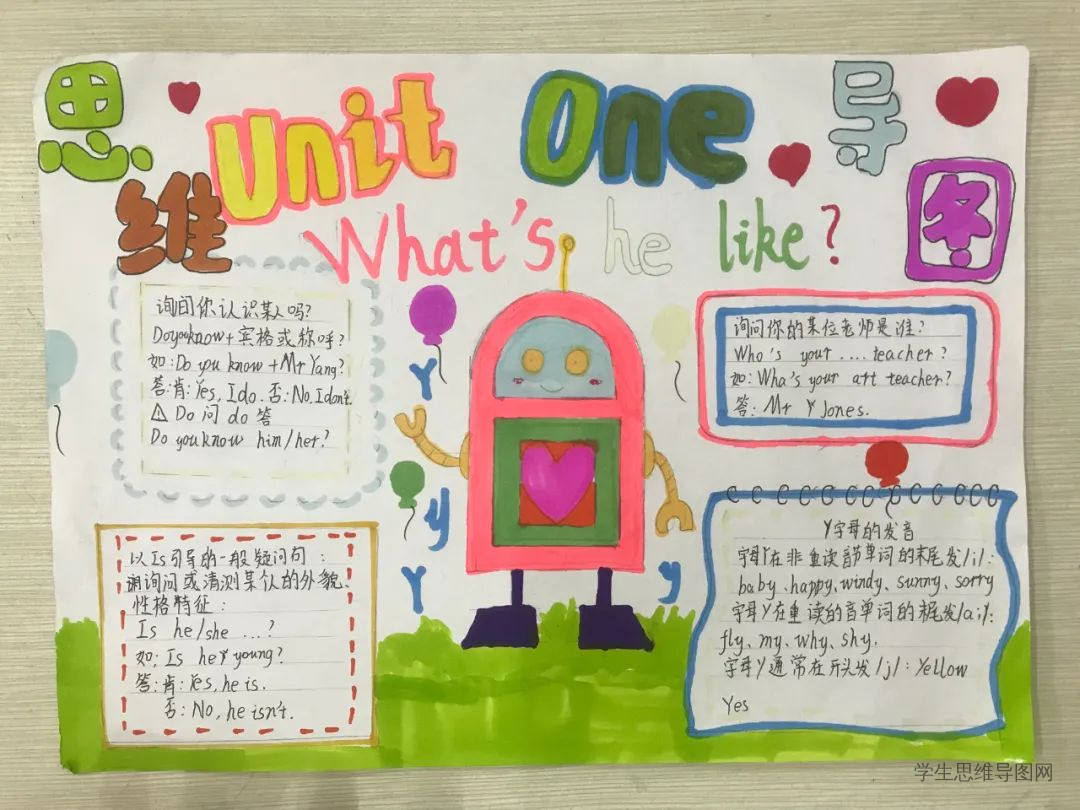 思维导图
Unit One
What's he like?
询问你认识某人吗?
Do you know + 宾格或称呼?
如: Do you know + Mr Yang?
答: 肯: Yes, I do. 否: No, I don't.
⚠ Do 问 do 答
Do you know him/her?
询问你的某位老师是谁?
Who's your .... teacher?
如: Wha's your art teacher?
答: Mr Y Jones.
Y
y
Y
y
以Is引导的一般疑问句:
询问或清测某人的外貌、
性格特征:
Is he/she ...?
如: Is he Y young?
答: 肯: Yes, he is.
否: No, he isn't.
Y字母的发音
字母Y在非重读音节单词的末尾发/i/:
baby、happy、windy、sunny、sorry
字母Y在重读的音单词的末尾发/ai/:
fly、my、why、shy.
字母Y通常在开头发/j/: Yellow
Yes
学生思维导图网